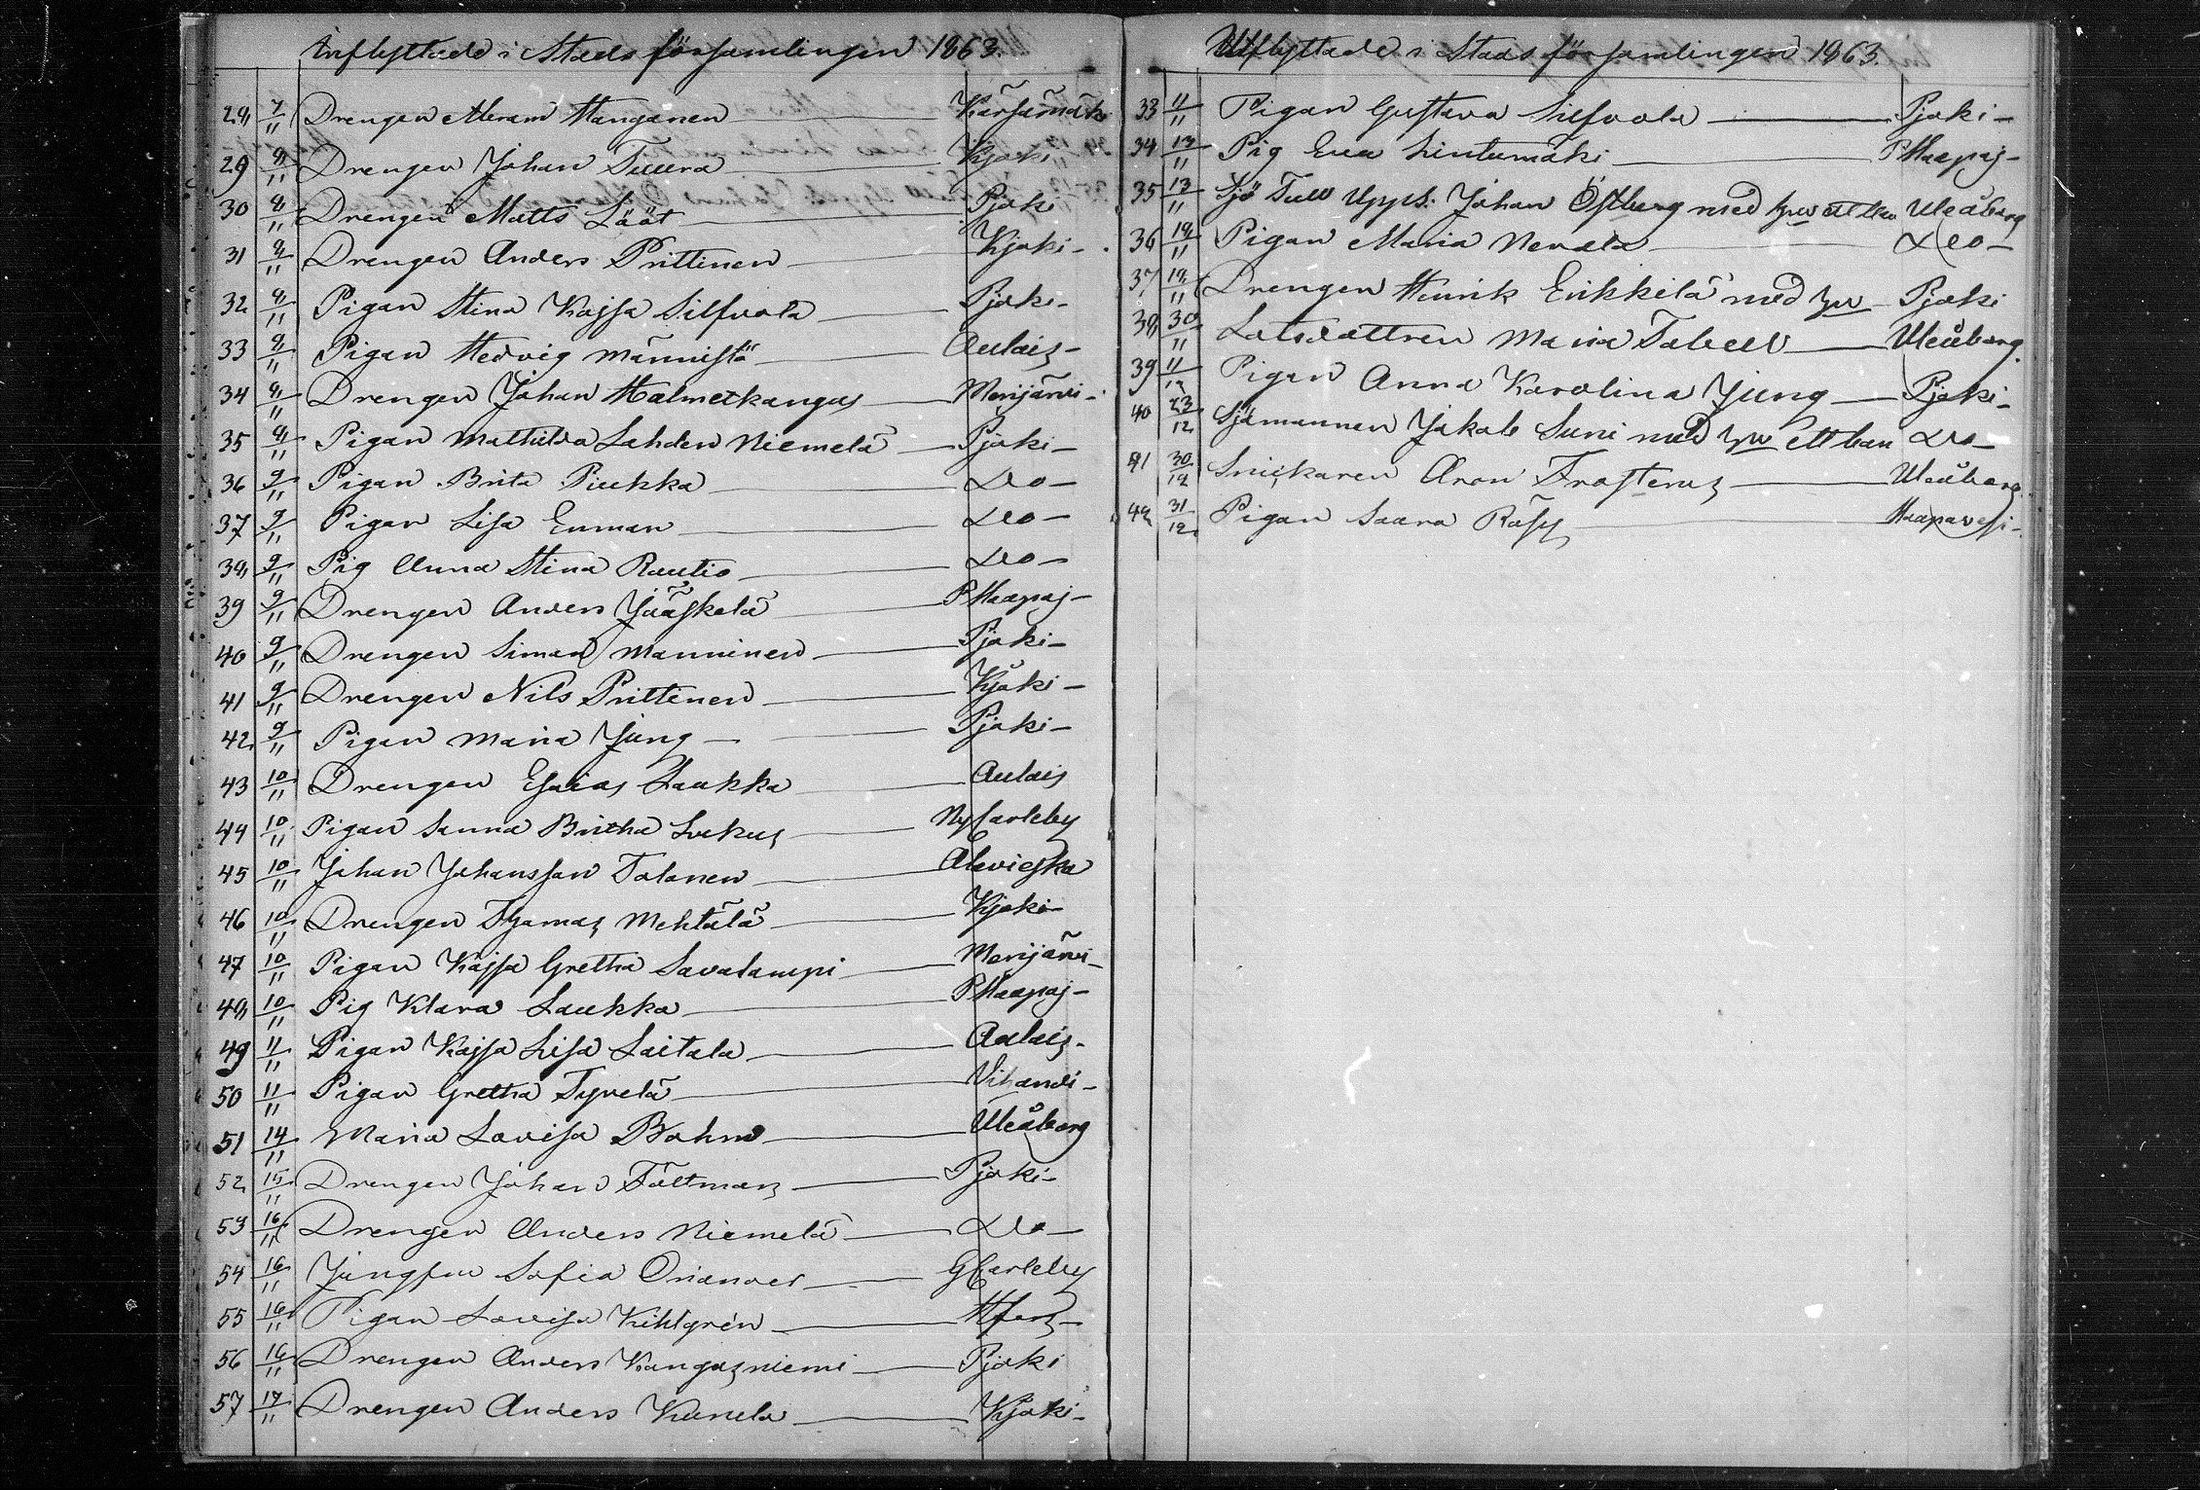 Inflyttade i Stads församlingen 1863.
28 7/11 Drengen Abram Manganen Kärsämäki
29 8/11 Drengen Johan Tuura Kjoki
30 8/11 Drengen Matts Lööt Pjoki
31 8/11 Drengen Anders Prittinen Kjoki-
32 8/11 Pigan Stina Kajsa Silfvola Pjoki-
33 8/11 Pigan Hedvig Männistö Aulais-
34 8/11 Drengen Johan Halmetkangas Merijärvi-
35 8/11 Pigan Mathilda Lahden Niemelä Pjoki-
36 9/11 Pigan Brita Piukka Do-
37 9/11 Pigan Lisa Enman Do-
38 9/11 Pig Anna Stina Rautio Do-
39 9/11 Drengen Anders Jääskelä P Haapaj-
40 9/11 Drengen Simon Manninen Pjoki-
41 9/11 Drengen Nils Prittinen Kjoki-
42 9/11 Pigan Maria Jung Pjoki-
43 10/11 Drengen Esaias Laukka Aulais
44 10/11 Pigan Sanna Britha Ny Carleby
45 10/11 Johan Johansson Tolonen Alavieska
46 10/11 Drengen Thomas Mehtälä Kjoki
47 10/11 Pigan Kajsa Gretha Savalampi Merijärvi-
48 10/11 Pig Klara Laukka P Haapaj-
49 11/11 Pigan Kajsa Lisa Laitala Aulais-
50 11/11 Pigan Gretha Tyvelä Vihandi-
51 14/11 Maria Lovisa Bohm Uleåborg
52 15/11 Drengen Johan Fältman Pjoki-
53 16/11 Drengen Anders Niemelä Do-
54 16/11 Jungfru Sofia G Carleby
55 16/11 Pigan Lovisa Kihlgrén Hfors-
56 16/11 Drengen Anders Kangasniemi Pjoki
57 17/11 Drengen Anders Kunela Kjoki-
Utflyttade i Stads församlingen 1863.
33 11/11 Pigan Gustava Silfvola Pjoki-
34 13/11 Pig Eva Lintumäki P Haapaj-
35 13/11 Sjö Tull Upps. Johan Östberg med hru ett barn Uleåborg
36 18/11 Pigan Maria Nevala Do-
37 18/11 Drengen Henrik Erikkilä med hru Pjoki
38 30/11 Lotsdottren Maria Tabell Uleåborg.
39 11/12 Pigan Anna Karolina Jung Pjoki-
40 23/12 Sjömannen Jakob Suni med hru ett barn Do-
41 30/12 Snickaren Aron Frosterus Uleåborg
42 31/12 Pigan Saara Räsy Haapavesi-